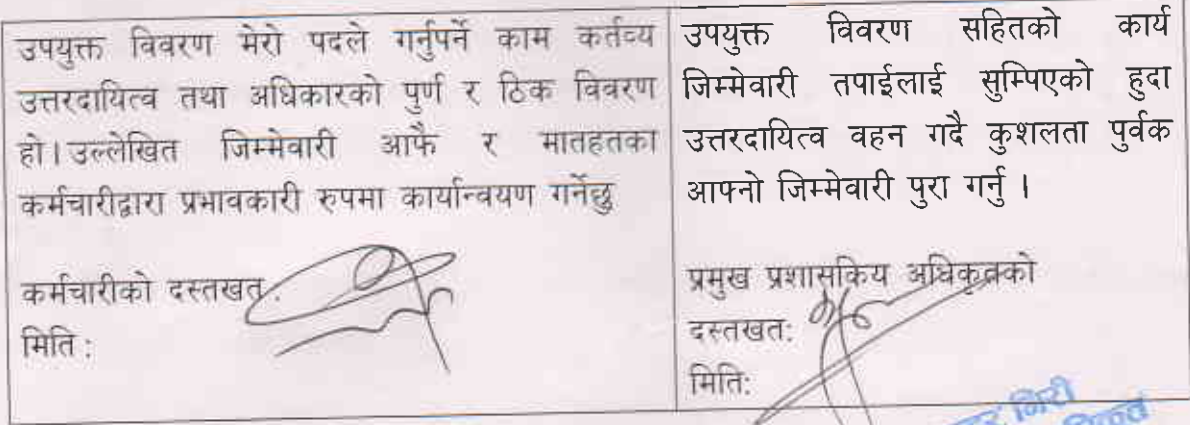 उपयुक्त विवरण मेरो पदले गर्नुपर्ने काम कर्तव्य
उत्तरदायित्व तथा अधिकारको पुर्ण र ठिक विवरण
हो। उल्लेखित जिम्मेवारी आफै र मातहतका
कर्मचारीद्वारा प्रभावकारी रुपमा कार्यान्वयण गर्नेछु
कर्मचारीको दस्तखत.
मिति :
उपयुक्त विवरण सहितको कार्य
जिम्मेवारी तपाईलाई सुम्पिएको हुदा
उत्तरदायित्व वहन गदै कुशलता पुर्वक
आफ्नो जिम्मेवारी पुरा गर्नु ।
प्रमुख प्रशासकिय अधिकृतको
दस्तखत:
मिति:
गिरी